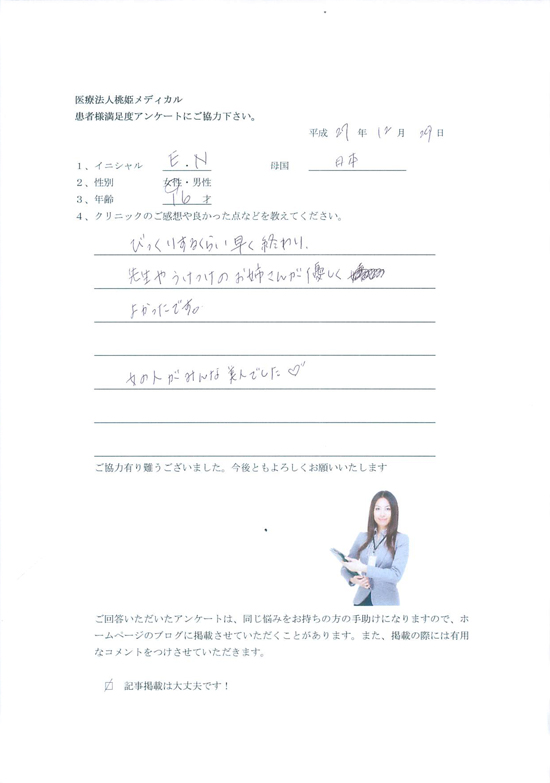 医療法人桃姫メディカル
患者様満足度アンケートにご協力下さい。
平成 27 年 12 月 29 日
1、イニシャル E.N 母国 日本
2、性別 女性・男性
3、年齢 16才
4、クリニックのご感想や良かった点などを教えてください。
びっくりするくらい早く終わり、
先生やうけつけのお姉さんが優しく
よかったです。
女の人がみんな美人でした♡
ご協力有り難うございました。今後ともよろしくお願いいたします
ご回答いただいたアンケートは、同じ悩みをお持ちの方の手助けになりますので、ホ
ームページのブログに掲載させていただくことがあります。また、掲載の際には有用
なコメントをつけさせていただきます。
☑ 記事掲載は大丈夫です！